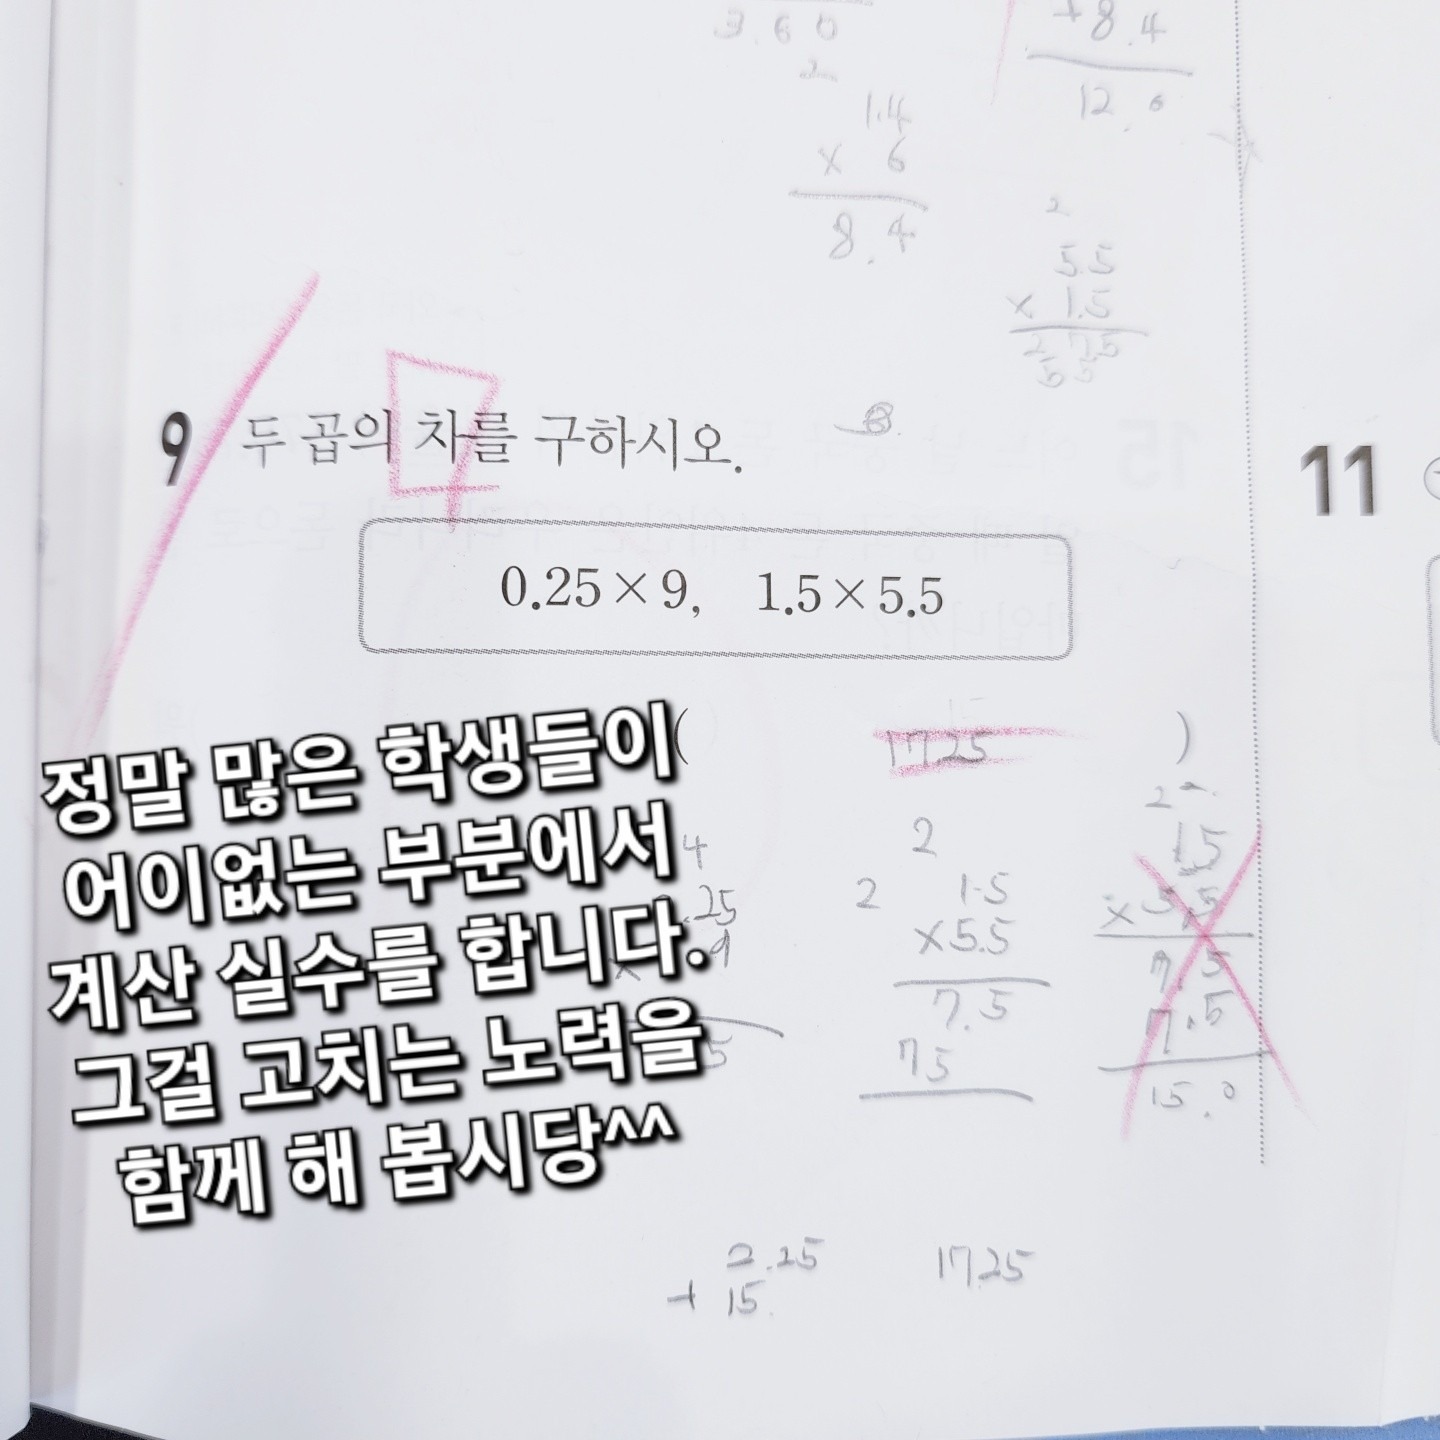 3.60
+8.4
12.0
2
1.4
× 6
8.4
2
5.5
× 1.5
9 두 곱의 차를 구하시오.
11
0.25×9, 1.5×5.5
( 17.25 )
정말 많은 학생들이
어이없는 부분에서
계산 실수를 합니다.
그걸 고치는 노력을
함께 해 봅시당^^
4
.25
9
5
2
2 1.5
×5.5
7.5
75
2
1.5
×5.5
7.5
7.5
15.0
2.25
+ 15.
17.25